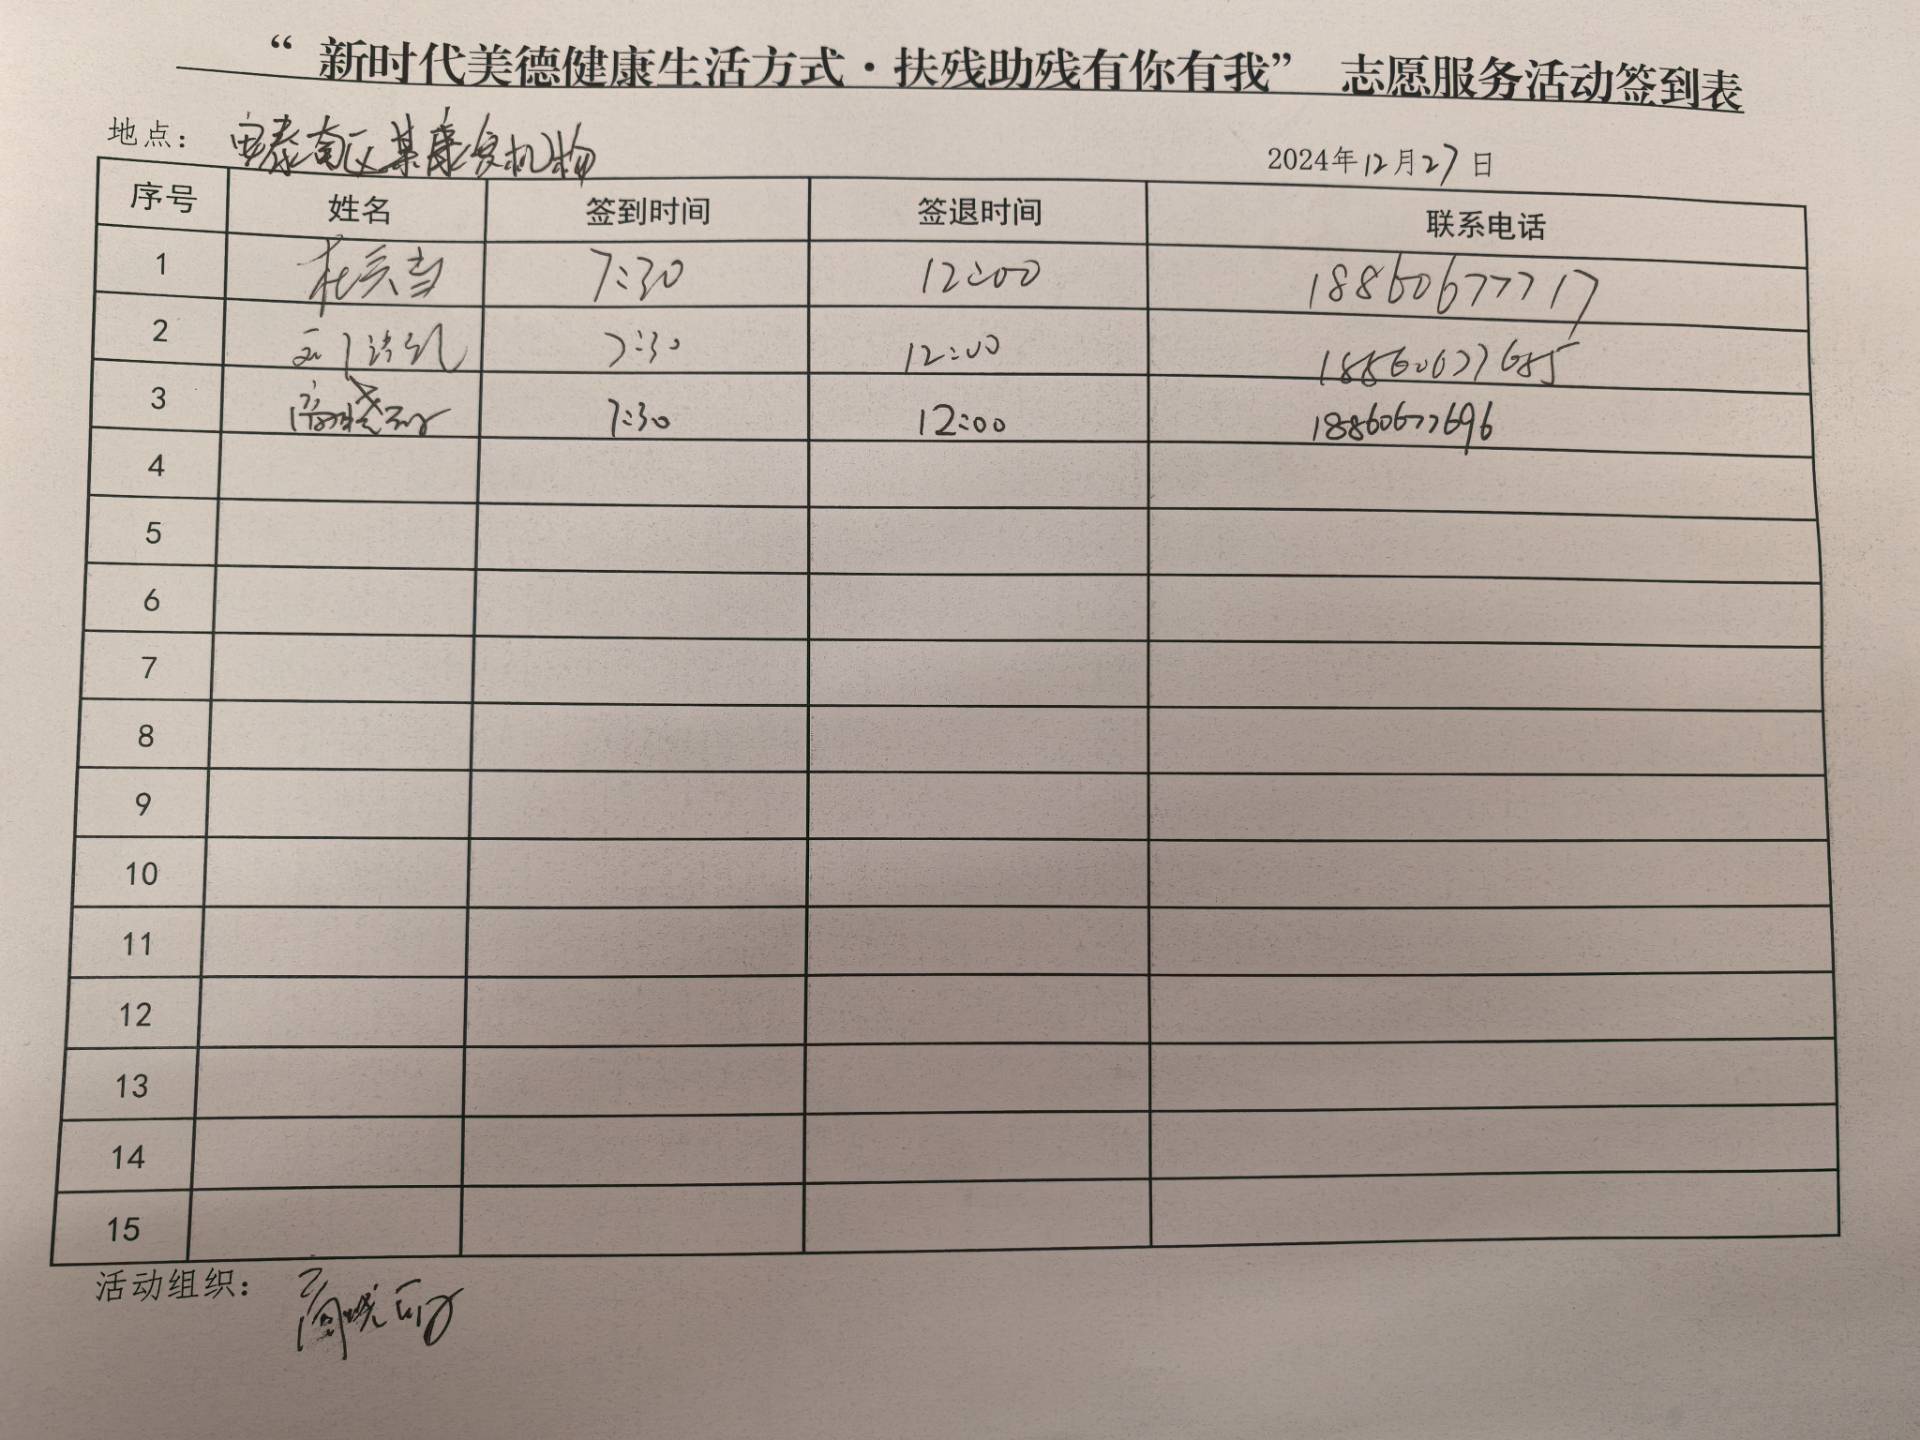 “新时代美德健康生活方式·扶残助残有你有我” 志愿服务活动签到表
地点： 某康复机构
2024年12月27日
序号 姓名 签到时间 签退时间 联系电话
1 7:30 12:00 18860677717
2 7:30 12:00 18860677685
3 7:30 12:00 18860677696
4
5
6
7
8
9
10
11
12
13
14
15
活动组织：